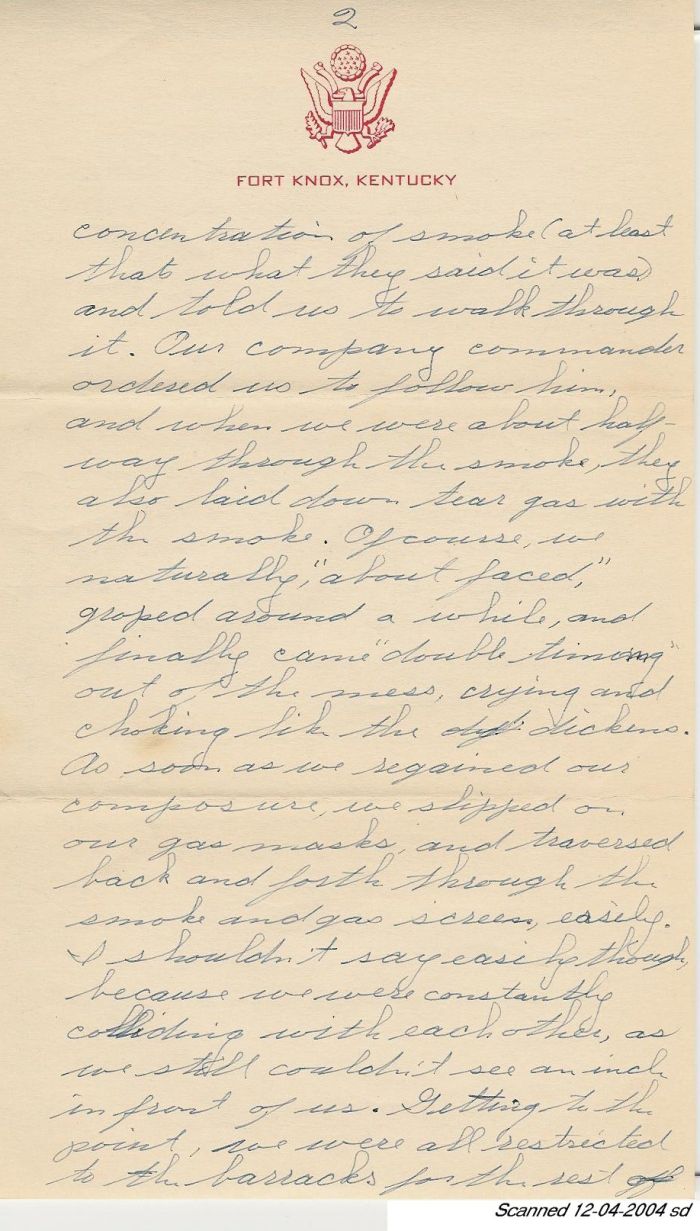 2
FORT KNOX, KENTUCKY
concentration of smoke (at least
thats what they said it was)
and told us to walk through
it. Our company commander
ordered us to follow him,
and when we were about half-
way through the smoke, they
also laid down tear gas with
the smoke. Of course, we
naturally, "about faced,"
groped around a while, and
finally came "double timing"
out of the mess, crying and
choking like the dickens.
As soon as we regained our
composure, we slipped on
our gas masks, and traversed
back and forth through the
smoke and gas screen, easily.
I shouldn't say easily though,
because we were constantly
colliding with each other, as
we still couldn't see an inch
in front of us. Getting to the
point, we were all restricted
to the barracks for the rest of
Scanned 12-04-2004 sd